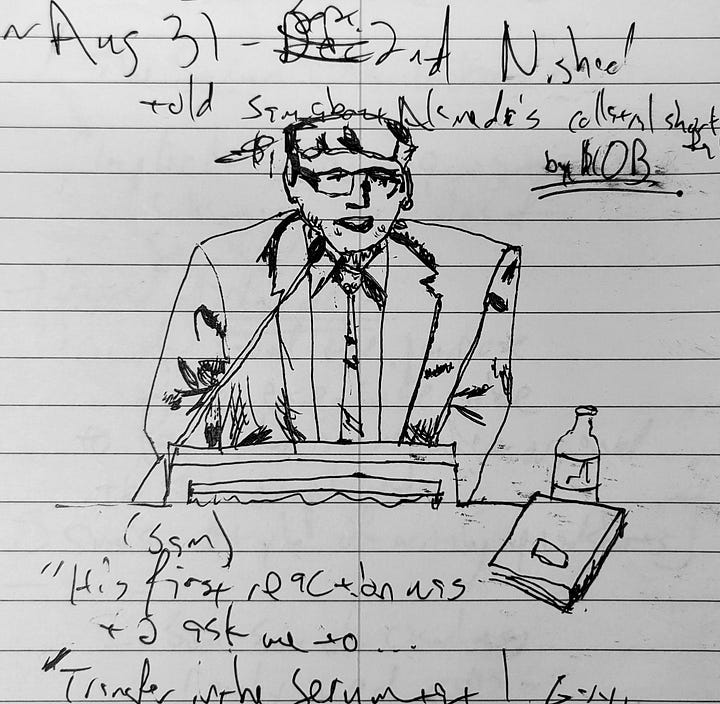 ~ Aug 31 - 2nd Nishad
told Sam about Alameda's collateral short
by
(Sam)
"His first reaction was
to ask me to ...
"Transfer in the Serum